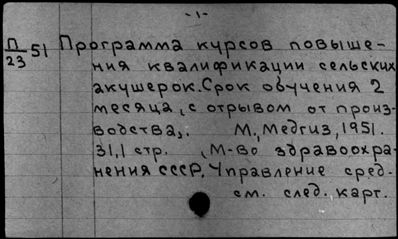 -1-
П/23 51 Программа курсов повыше-
ния квалификации сельских
акушерок. Срок обучения 2
месяца, с отрывом от произ-
водства,. М., Медгиз, 1951.
31,1 стр. , М-во здравоохра-
нения СССР. Управление сред.
см. след. карт.